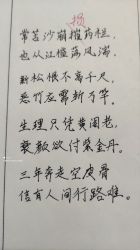 损
常苦沙崩损药栏
也从江槛落风湍.
新松恨不高千尺
恶竹应需斩万竿.
生理只凭黄阁老,
衰颜欲付紫金丹.
三年奔走空皮骨
信有人间行路难.